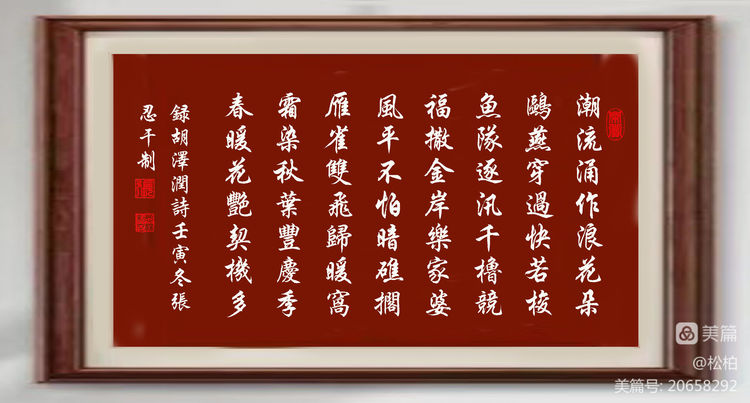 潮流涌作浪花朵
鷗燕穿過快若梭
魚隊逐汛千櫓競
福撒金岸樂家婆
風平不怕暗礁擱
雁雀雙飛歸暖窩
霜染秋葉豐慶季
春暖花艷契機多
録胡澤潤詩壬寅冬張
忍干制
美篇
@松柏
美篇号: 20658292